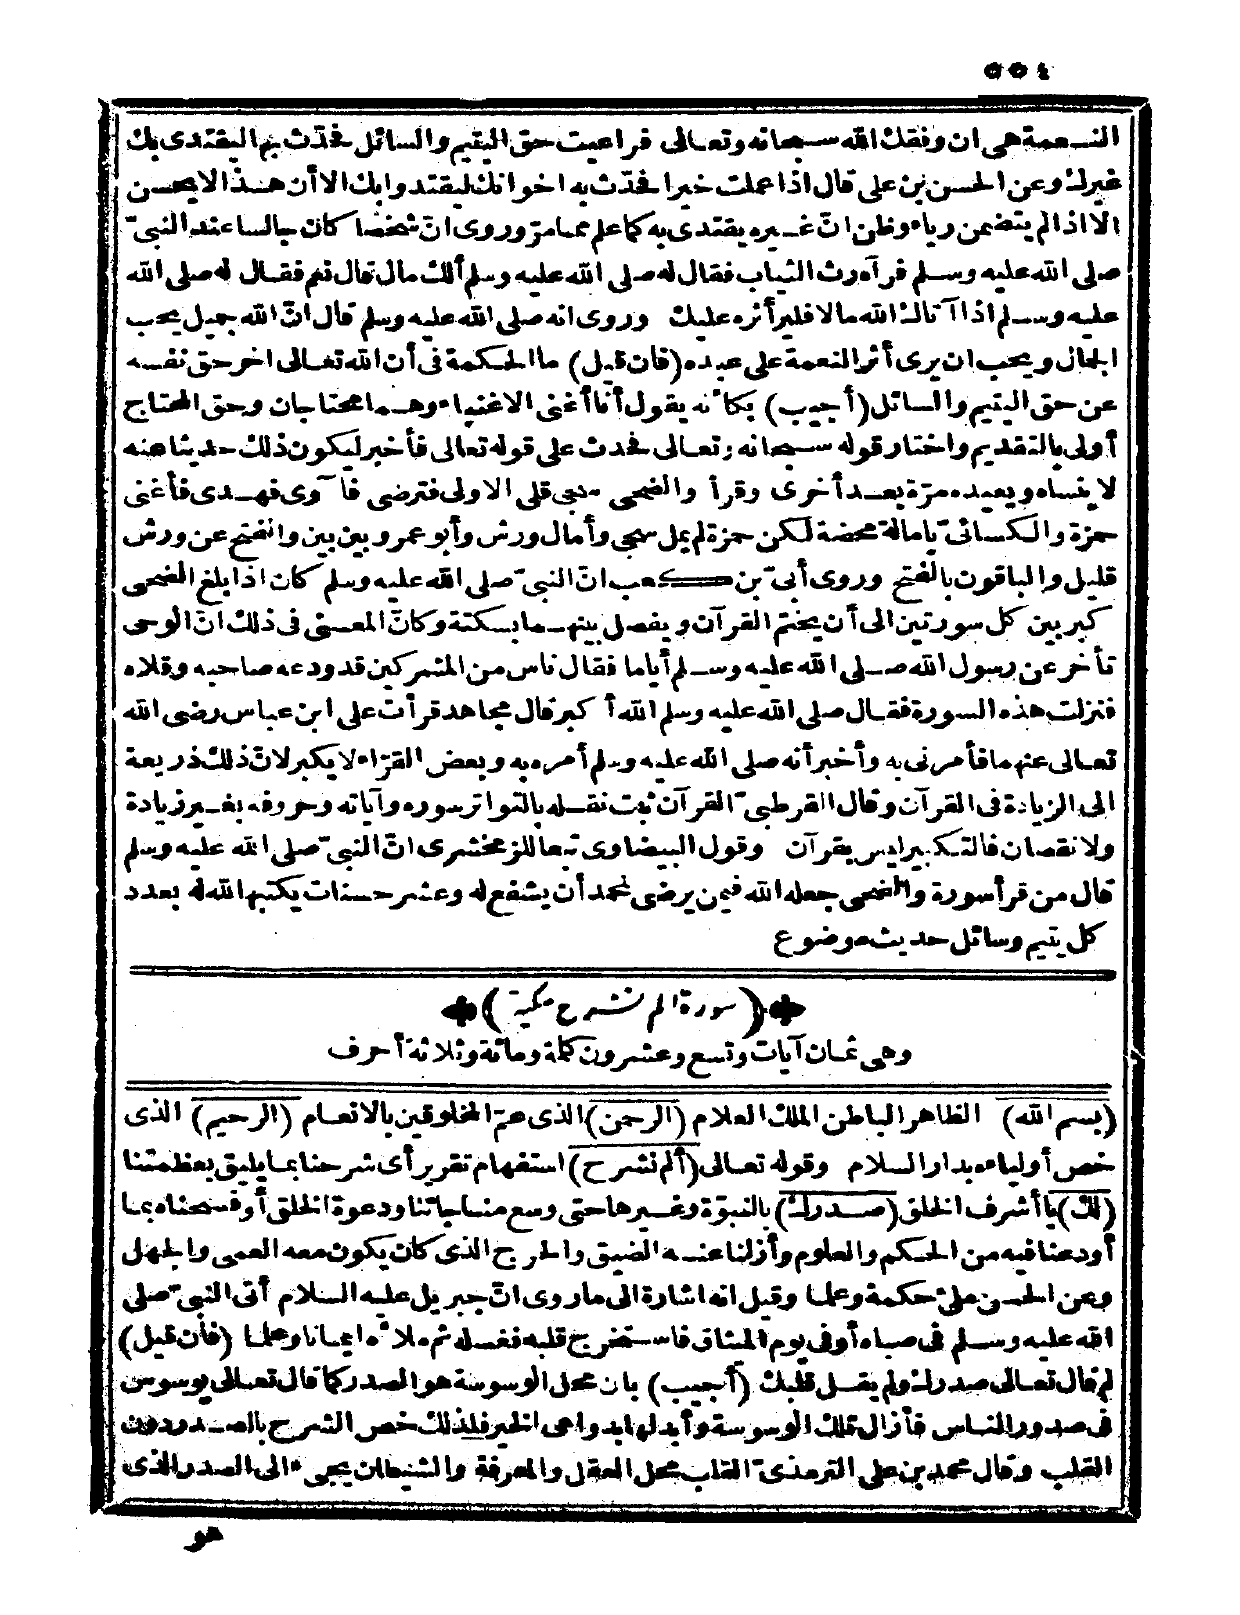 ٥٥٤
النعمة هى ان وفقك الله سبحانه وتعالى فراعيت حق اليتيم والسائل فحدّث بها ليقتدى بك
غيرك وعن الحسن بن على قال اذا عملت خيرا فحدّث به اخوانك ليقتدوا بك الا أن هذا لا يحسن
الا اذا لم يتضمن رياء وظن انّ غيره يقتدى به كما علم مما مرّ وروى انّ شخصا كان جالسا عند النبىّ
صلى الله عليه وسلم فرآه رث الثياب فقال له صلى الله عليه وسلم ألك مال قال نعم فقال له صلى الله
عليه وسلم اذا آتاك الله مالا فلير أثره عليك وروى انه صلى الله عليه وسلم قال انّ الله جميل يحب
الجمال ويحب ان يرى أثر النعمة على عبده (فان قيل) ما الحكمة فى أن الله تعالى اخر حق نفسه
عن حق اليتيم والسائل (أجيب) بكأنه يقول أنا أغنى الاغنياء وهما محتاجان وحق المحتاج
أولى بالتقديم واختار قوله سبحانه وتعالى فحدث على قوله تعالى فأخبر ليكون ذلك حديثا عنه
لا ينساه ويعيده مرّة بعد أخرى وقرأ والضحى سجى قلى الاولى فترضى فآوى فهدى فأغنى
حمزة والكسائىّ بامالة محضة لكن حمزة لم يمل سجى وأمال ورش وأبو عمرو بين بين والفتح عن ورش
قليل والباقون بالفتح وروى أبىّ بن كعب انّ النبىّ صلى الله عليه وسلم كان اذا بلغ الضحى
كبر بين كل سورتين الى أن يختم القرآن ويفصل بينهما بسكتة وكانّ المعنى فى ذلك انّ الوحى
تأخر عن رسول الله صلى الله عليه وسلم أياما فقال ناس من المشركين قد ودعه صاحبه وقلاه
فنزلت هذه السورة فقال صلى الله عليه وسلم الله أكبر قال مجاهد قرأت على ابن عباس رضى الله
تعالى عنهما فأمرنى به وأخبر أنه صلى الله عليه وسلم أمره به وبعض القرّاء لا يكبر لانّ ذلك ذريعة
الى الزيادة فى القرآن وقال القرطبىّ القرآن ثبت نقله بالتواتر سوره وآياته وحروفه بغير زيادة
ولا نقصان فالتكبير ليس بقرآن وقول البيضاوى تبعا للزمخشرى انّ النبىّ صلى الله عليه وسلم
قال من قرأ سورة والضحى جعله الله فيمن يرضى لمحمد أن يشفع له وعشر حسنات يكتبها الله له بعدد
كل يتيم وسائل حديث موضوع
(سورة الم نشرح مكية)
وهى ثمان آيات وتسع وعشرون كلمة ومائة وثلاثة أحرف
(بسم الله) الظاهر الباطن الملك العلام (الرحمن) الذى عمّ المخلوقين بالانعام (الرحيم) الذى
خص أولياءه بدار السلام وقوله تعالى (ألم نشرح) استفهام تقرير أى شرحنا بما يليق بعظمتنا
(لك) يا أشرف الخلق (صدرك) بالنبوّة وغيرها حتى وسع مناجاتنا ودعوة الخلق أو فسحناه بما
أودعنا فيه من الحكم والعلوم وأزلنا عنه الضيق والحرج الذى كان يكون معه العمى والجهل
وعن الحسن ملئ حكمة وعلما وقيل انه اشارة الى ما روى انّ جبريل عليه السلام أتى النبىّ صلى
الله عليه وسلم فى صباه أو فى يوم الميثاق فاستخرج قلبه فغسله ثم ملأه ايمانا وعلما (فأن قيل)
لم قال تعالى صدرك ولم يقل قلبك (أجيب) بان محل الوسوسة هو الصدر كما قال تعالى يوسوس
فى صدور الناس فأزال تلك الوسوسة وأبدلها بدواعى الخير فلذلك خص الشرح بالصدر دون
القلب وقال محمد بن على الترمذىّ القلب محل العقل والمعرفة والشيطان يجىء الى الصدر الذى
هو